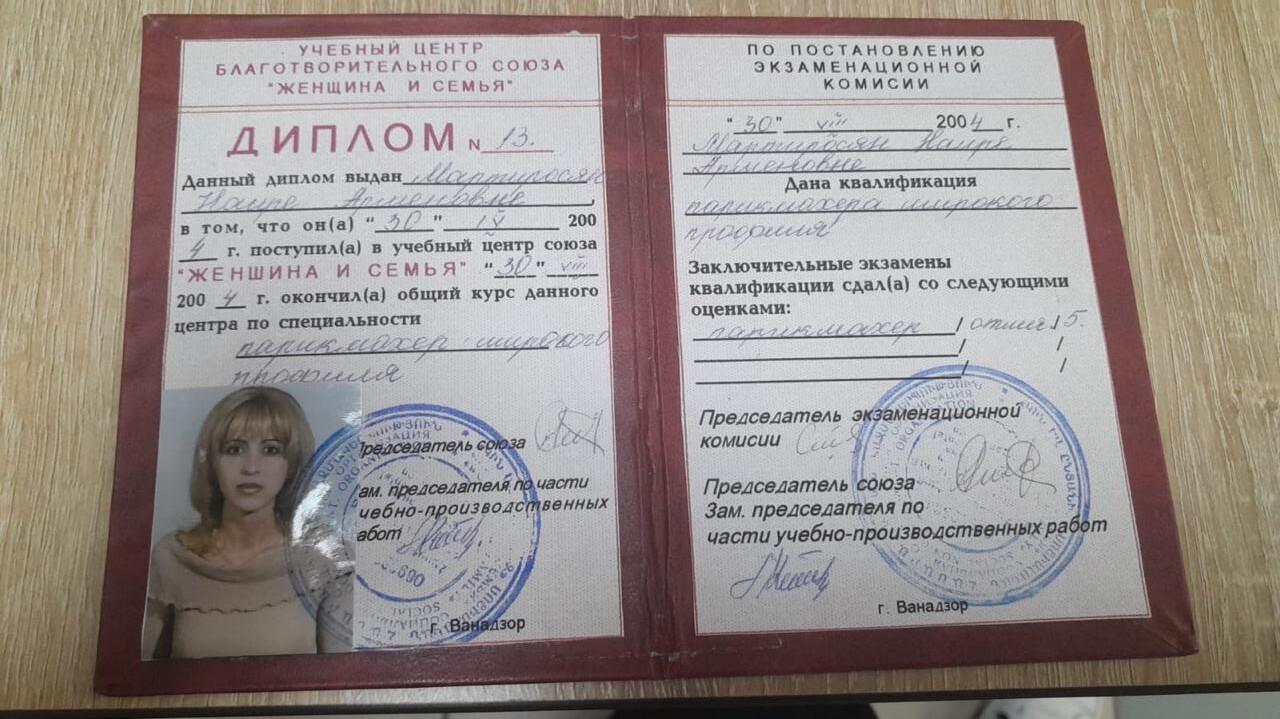 УЧЕБНЫЙ ЦЕНТР
БЛАГОТВОРИТЕЛЬНОГО СОЮЗА
"ЖЕНЩИНА И СЕМЬЯ"
ДИПЛОМ N 13.
Данный диплом выдан Мартиросян
Наире Арменовне,
в том, что он(а) "30" IV 200
4 г. поступил(а) в учебный центр союза
"ЖЕНШИНА И СЕМЬЯ" "30" VIII
200 4 г. окончил(а) общий курс данного
центра по специальности
парикмахер широкого
профиля
Председатель союза
ам. председателя по части
чебно-производственных
абот
г. Ванадзор
ПО ПОСТАНОВЛЕНИЮ
ЭКЗАМЕНАЦИОННОЙ
КОМИСИИ
"30" VIII 2004 г.
Мартиросян Наире
Арменовне
Дана квалификация
парикмахера широкого
профиля
Заключительные экзамены
квалификации сдал(а) со следующими
оценками:
парикмахер / отлич / 5.
/ /
/ /
Председатель экзаменационной
комисии
Председатель союза
Зам. председателя по
части учебно-производственных работ
г. Ванадзор